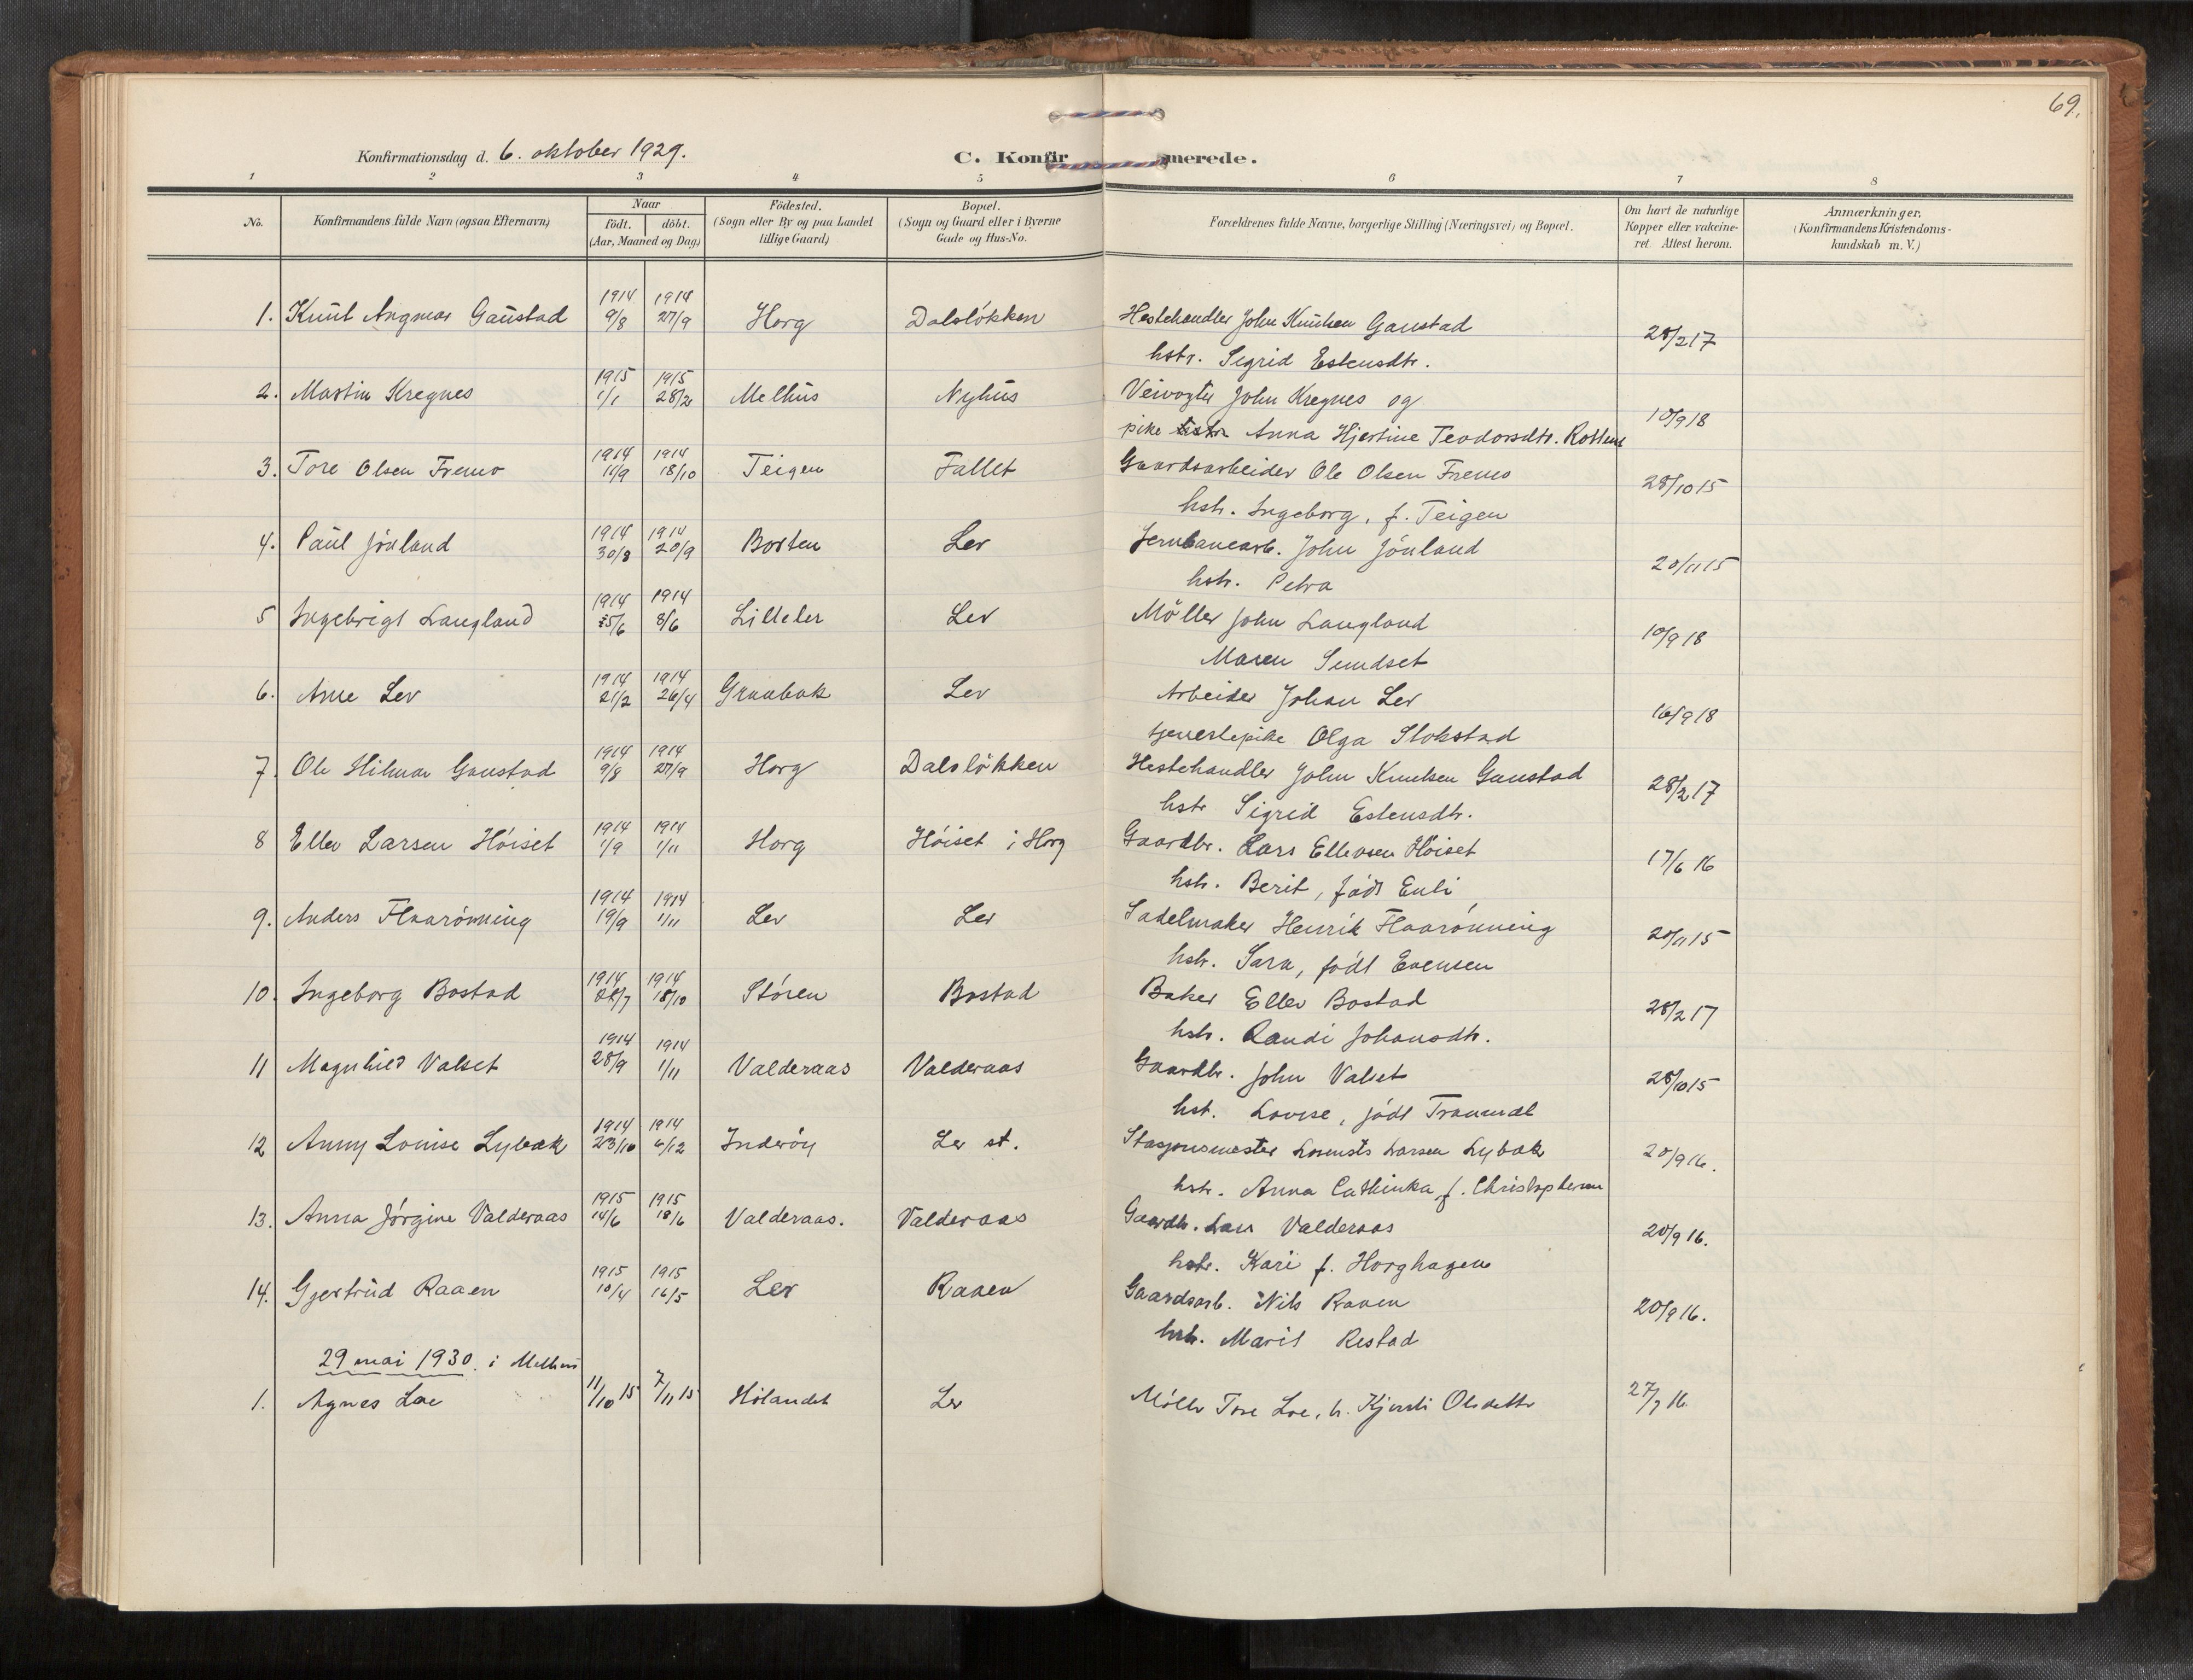 69.
Konfirmationsdag d. 6. oktober 1929.
C. Konfirmerede.
1 2 3 4 5 6 7 8
No.
Konfirmandens fulde Navn (ogsaa Efternavn)
Naar
födt. döbt.
(Aar, Maaned og Dag)
Födested.
(Sogn eller By og paa Landet
tillige Gaard)
Bopæl.
(Sogn og Gaard eller i Byerne
Gade og Hus-No.
Forældrenes fulde Navne, borgerlige Stilling (Næringsvei) og Bopæl.
Om havt de naturlige
Kopper eller vakcine-
ret. Attest herom.
Anmærkninger.
(Konfirmandens Kristendoms-
kundskab m. V.)
1. Knut Angmar Gaustad 1914 9/8 1914 27/9 Horg Dalsløkken Hestehandler John Knutsen Gaustad 28/2 17
hstr. Sigrid Estensdtr.
2. Martin Kregnes 1915 1/1 1915 28/2 Melhus Nyhus Veivogter John Kregnes og 10/9 18
pike Anna Hjertine Teodorsdtr.
3. Tore Olsen Fremo 1914 11/9 1914 18/10 Teigen Fallet Gaardsarbeider Ole Olsen Fremo 28/10 15
hstr. Ingeborg, f. Teigen
4. Paul Jönland 1914 30/8 1914 20/9 Borten Ler Jernbanearb. John Jönland 20/11 15
hstr. Petra
5 Ingebrigt Langland 1914 5/6 1914 8/6 Lilleler Ler Möller John Langland 10/9 18
Maren Sundset
6. Arne Ler 1914 21/2 1914 26/4 Graabak Ler Arbeider Johan Ler 10/9 18
tjenestepike Olga Stokstad
7. Ole Hilmar Gaustad 1914 9/8 1914 27/9 Horg Dalsløkken Hestehandler John Knutsen Gaustad 28/2 17
hstr Sigrid Estensdtr.
8 Ellev Larsen Höiset 1914 1/9 1914 1/11 Horg Höiset i Horg Gaardbr. Lars Ellevsen Höiset 17/6 16
hstr. Berit, födt Enli
9. Anders Flaarönning 1914 19/9 1914 1/11 Ler Ler Sadelmaker Henrik Flaarönning 20/11 15
hstr. Sara, födt Evensen
10. Ingeborg Bostad 1914 28/7 1914 18/10 Stören Bostad Baker Ellev Bostad 28/2 17
hstr. Randi Johansdtr.
11 Magnhild Valset 1914 28/9 1914 1/11 Valderaas Valderaas Gaardbr. John Valset 28/10 15
hst. Lovise, födt Tranmæl
12 Anny Louise Lybæk 1914 23/10 1914 6/12 Inderöy Ler st. Stasjonsmester Lorents Larsen Lybæk 20/9 16.
hstr. Anna Cathinka f. Christophersen
13. Anna Jörgine Valderaas 1915 14/6 1915 18/6 Valderaas. Valderaas Gaardb. Lars Valderaas 20/9 16.
hstr. Kari f. Horghagen
14. Gjertrud Raaen 1915 10/4 1915 16/5 Ler Raaen Gaardsarb. Nils Raaen 20/9 16.
hstr. Marit Restad
29 mai 1930. i Melhus
1. Agnes Loe 11/10 15 7/11 15 Hölandet Ler Möller Tore Loe, h. Kjersti Olsdatter 27/7 16.